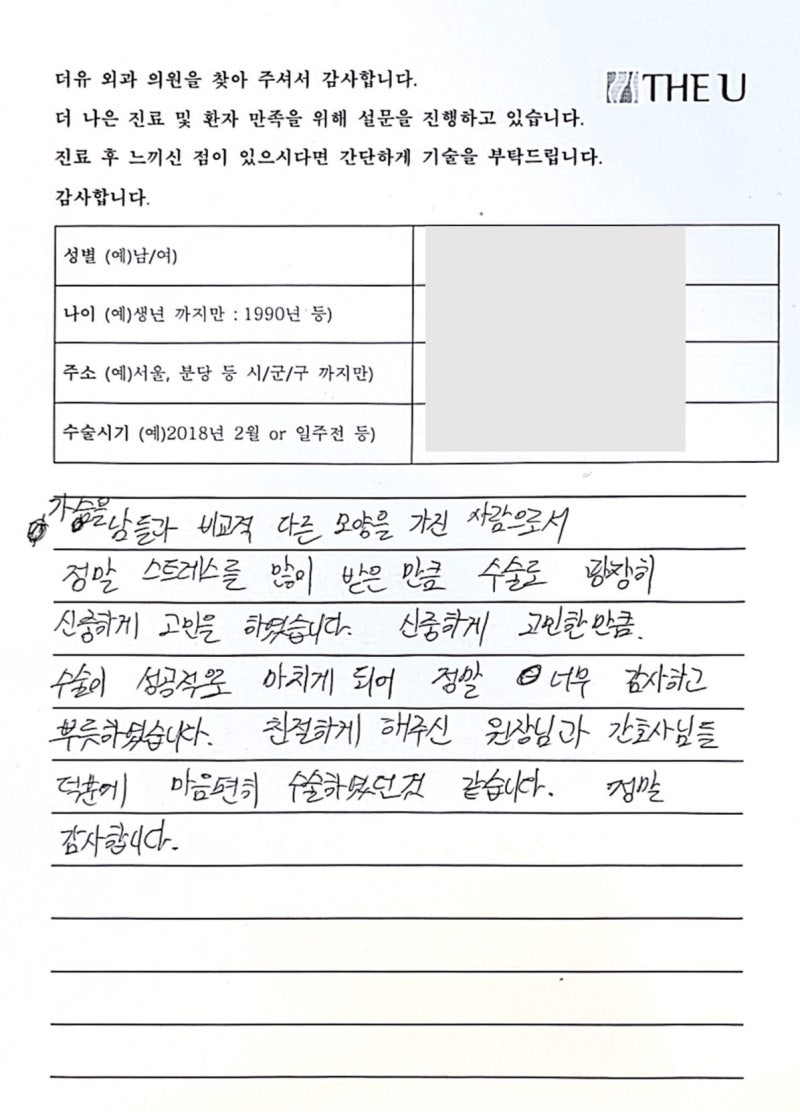 더유 외과 의원을 찾아 주셔서 감사합니다.
THE U
더 나은 진료 및 환자 만족을 위해 설문을 진행하고 있습니다.
진료 후 느끼신 점이 있으시다면 간단하게 기술을 부탁드립니다.
감사합니다.
성별 (예)남/여)
나이 (예)생년 까지만 : 1990년 등)
주소 (예)서울, 분당 등 시/군/구 까지만)
수술시기 (예)2018년 2월 or 일주전 등)
가슴을 남들과 비교적 다른 모양을 가진 사람으로서
정말 스트레스를 많이 받은 만큼 수술로 굉장히
신중하게 고민을 하였습니다. 신중하게 고민한만큼.
수술이 성공적으로 마치게 되어 정말 너무 감사하고
뿌듯하였습니다. 친절하게 해주신 원장님과 간호사님들
덕분에 마음편히 수술하였던것 같습니다. 정말
감사합니다.